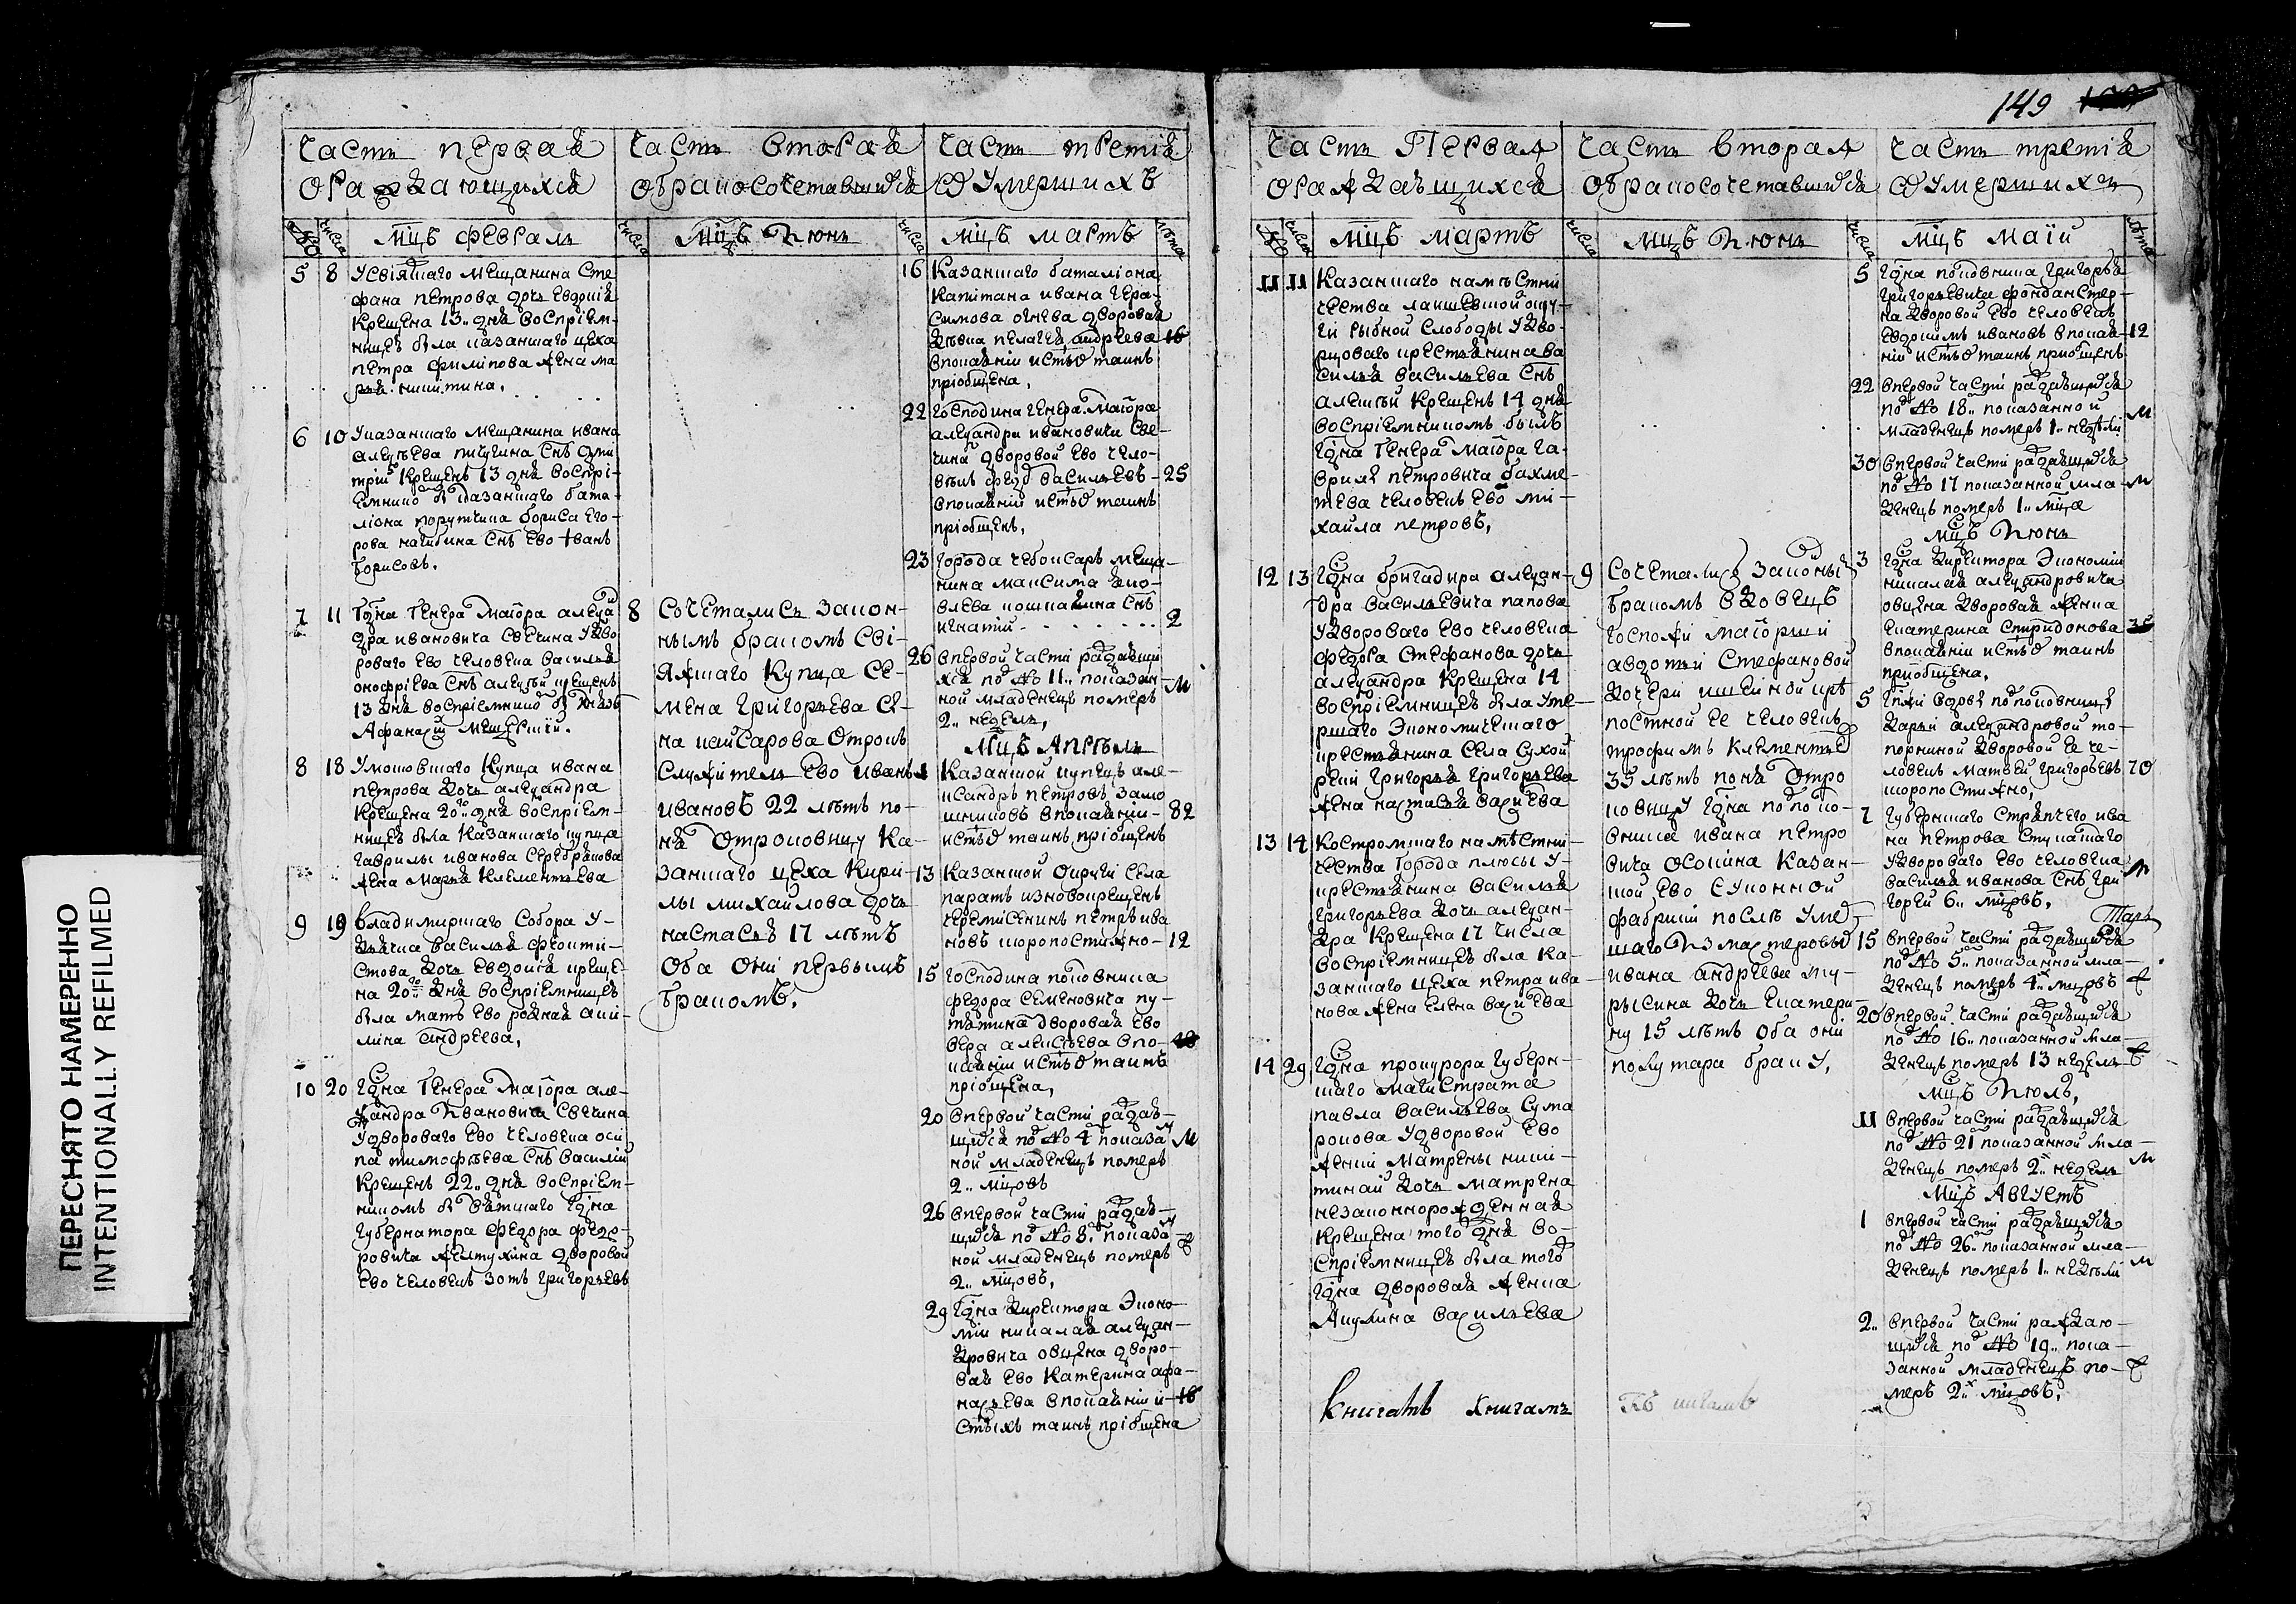 ПЕРЕСНЯТО НАМЕРЕННО
INTENTIONALLY REFILMED
часть первая
о раждающихся
№ числа
мцъ февраль
5 8 У свіяжскаго мещанина Сте
фана петрова дочь евдокіѣ
крещена 13,, дня воспріем-
ницеѣ была казанскаго цеха
петра филипова жена ма
рья никитина.
6 10 У казанскаго мещанина ивана
алексѣева пичугина снъ дми
трій крещенъ 13 дня воспрі-
емнико был казанскаго бата-
ліона порутчика бориса его-
рова снъ ево іванъ
борисовъ.
7 11 Гдна генера маіора алеѯа
дра ивановича свечина у дво
роваго ево человека василья
онофріева снъ алеѯѣй крещенъ
13 дня воспріемнико был
Афанасій мещерскій.
8 18 купца ивана
петрова дочь алеѯандра
крещена 20 дня воспріем-
ницеѣ была казанскаго купца
гаврилы иванова серебрякова
жена марья клементьева
9 19 владимирскаго собора у
дьячка василья феокти-
стова дочь евдокія креще-
на 20 дня воспріемницеѣ
была мать ево родная аки-
лина андреева,
10 20 Гдна генера маіора але-
ѯандра ивановича свечина
у двороваго ево человека оси
па тимофѣева снъ василій
крещенъ 22,, дня воспріем-
никомъ был гдна
губернатора федора федо-
ровича желтухина дворовой
ево человекъ зотъ григорьевъ
часть вторая
о бракосочетавшихся
числа
мцъ июнь
8 сочетались закон-
нымъ бракомъ сві-
яжскаго купца се-
мена григорьева сы-
на кайсарова отрокъ
служитель ево иванъ
ивановъ 22 лѣтъ по-
ня отроковицу ка-
занскаго цеха кири-
лы михайлова дочь
настасью 17 лѣтъ
оба они первымъ
бракомъ.
часть третія
о умершихъ
числа
мцъ мартъ
лѣта
16 казанскаго баталіона
капитана ивана гера-
симова огнева дворовая
дѣвка пелагея андреева 16
в покаяніи и стых таинъ
пріобщена,
22 господина генера маіора
алеѯандры ивановича све-
чина дворовой ево чело-
векъ федо васильевъ 25
в покаяніи и стых таинъ
пріобщенъ,
23 города чебоксаръ меща-
нина максима яко-
влева снъ
игнатій 2
26 в первой части раждающи
хся под № 11,, показан-
ной младенецъ померъ м
2,, недель,
мцъ апрѣль
1 казанской купецъ але-
ксандръ петровъ замо
шниковъ в покаяніи 82
и стых таинъ пріобщенъ
13 казанской округи села
паратъ из новокрещенъ
черемисенинъ петръ ива
новъ скоропостижно 12
15 господина полковника
федора семеновича пу-
тятина дворовая ево
вера алексѣева в по-
каяніи и стых таинъ
пріобщена,
20 в первой части раждаю-
щихся под № 4 показа
ной младенецъ померъ м
2,, мцовъ
26 в первой части раждаю-
щихся под № 8 показа
ной младенецъ померъ
2,, мцовъ,
29 гдна директора эконо-
міи николая алеѯан-
дровича овцына дворо-
вая ево катерина афа-
насьева в покаяніи и 16
стыхъ таинъ пріобщена
149
часть первая
о раждающихся
№ числа
мцъ мартъ
11 11 казанскаго намѣстни
чества лаишевской окру-
ги рыбной слободы у дво-
рцоваго крестьянина ва
силья васильева снъ
алеѯѣй крещенъ 14 дня
воспріемникомъ былъ
гдна генера маіора га-
врилы петровича бахме-
тева человекъ ево ми-
хаила петровъ,
12 13 гдна бригадира алеѯан-
дра васильевича папова
у двороваго ево человека
федора стефанова дочь
алеѯандра крещена 14
воспріемницеѣ была уме-
ршаго экономическаго
крестьянина села сухой
реки григорья григорьева
жена настасья васильева
13 14 костромскаго намѣстни-
чества города плюсы у
крестьянина василья
григорьева дочь алеѯан-
дра крещена 17 числа
воспріемницеѣ была ка-
занскаго цеха петра ива-
нова жена елена васильева
14 29 гдна прокурора губерн-
скаго магистрата
павла васильева сума
рокова у дворовой ево
женки матрены ники-
тиной дочь матрена
незаконнорожденная
крещена того дня во-
спріемницеѣ была того
гдна дворовая женка
акулина васильева
книгамъ книгамъ
часть вторая
о бракосочетавшихся
числа
мцъ июнь
9 сочетались законным
бракомъ вдовецъ
госпожи маіорши
авдотьи стефановой
дочери крѣ
постной ее человекъ
трофимъ клементьев
35 лѣтъ поня отро
ковицу гдна полко-
вника ивана петро
вича осокина казан-
ской ево суконной
фабрики послѣ умер-
шаго из мастеровых
ивана андреева ту-
рысина дочь екатери-
ну 15 лѣтъ оба они
полутара браку,
часть третія
о умершихъ
числа
мцъ маій
лѣта
5 гдна полковника григорья
григорьевича фондансте-
на дворовой ево человекъ
евдокимъ ивановъ в покая- 12
ніи и стых таинъ пріобщенъ
22 в первой части раждающихся
под № 18,, показанной
младенецъ померъ 1,, недѣли м
30 в первой части раждающихся
под № 17 показанной мла- м
денецъ померъ 1,, мца
мцъ июнь
3 гдна директора экономіи
николая алеѯандровича
овцына дворовая женка
екатерина спиридонова
в покаяніи и стых таинъ
пріобщена,
5 гпжи вдовы подполковницы
дарьи алеѯандровой то-
порниной дворовой ее че-
ловекъ матвѣй григорьевъ 70
скоропостижно,
7 губернскаго стряпчего ива
на петрова ступашаго
у двороваго ево человека
василья иванова снъ гри м
горей 6,, мцовъ,
15 в первой части раждающихся
под № 5,, показанной мла-
денецъ померъ 4,, мцовъ
20 в первой части раждающихся
под № 16,, показанной мла-
денецъ померъ 13 недель
мцъ июль,
11 в первой части раждающихся
под № 21 показанной мла-
денецъ померъ 2,, недели м
мцъ августъ
1 в первой части раждающихся
под № 26,, показанной мла-
денецъ померъ 1,, недѣли м
2,, в первой части раждаю-
щихся под № 19,, пока-
занной младенецъ по-
меръ 2,, мцовъ,